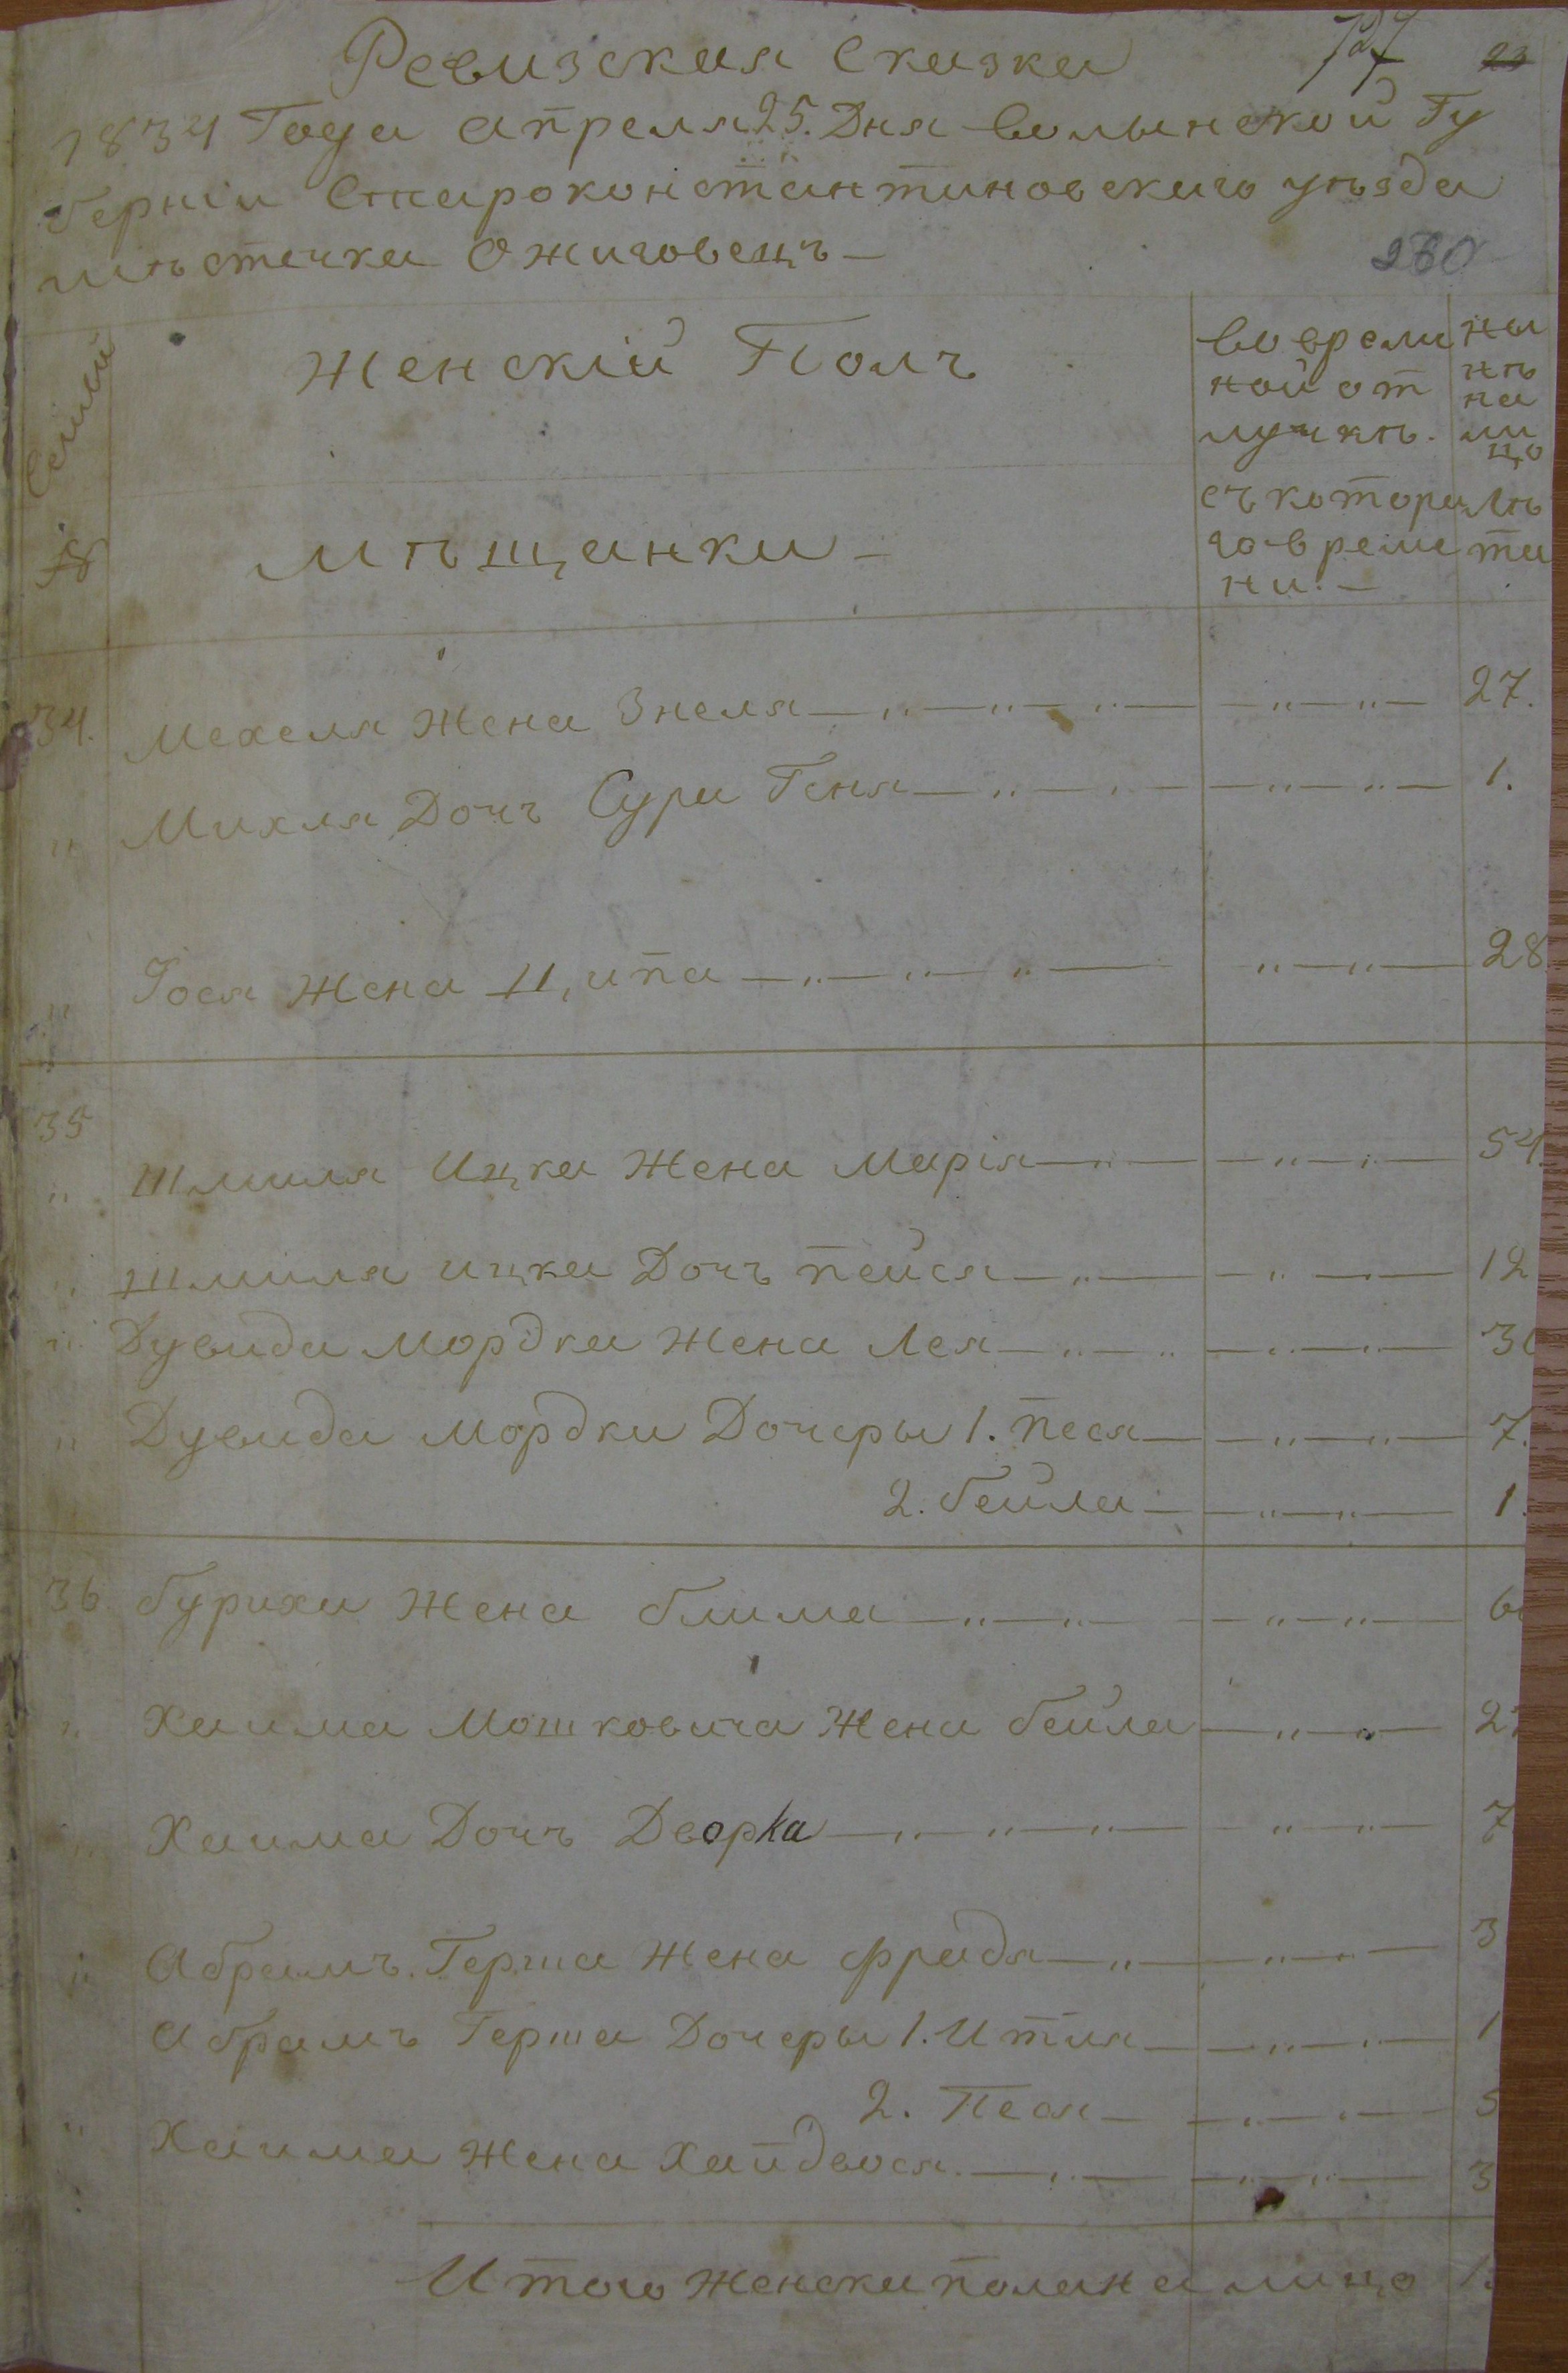 Ревизская Сказка
23
1834 Года апреля 25. Дня Волынской Гу
берніи Староконстантиновскаго уѣзда
мѣстечка Ожиговецъ —
260
№ Семьи
Женскій Полъ
во времен
ной от
лучкѣ.
ны
нѣ
на
ли
цо
Мѣщанки —
съ котора
го време
ни. —
Лѣ
та
34. Мехеля Жена Знеля — „ — „ — „ — — „ — „ — 27.
„ Михля Дочъ Сура Геня — „ — „ — — „ — „ — 1.
„ Гося Жена Ципа — „ — „ — „ — „ — „ — 28
35
„ Шмиля Ицка Жена Марія — „ — — „ — „ — 54.
„ Шмиля ицка Дочъ пейся — „ — — „ — „ — 12
„ Дувида Мордка Жена Лея — „ — „ — „ — „ —
„ Дувида Мордки Дочеры 1. песя — — „ — „ — 7.
2. бейла — — „ — „ — 1.
36 бурихи Жена блима — „ — „ — — „ — „ —
„ Хаима Мошковича Жена бейла — „ — „ —
„ Хаима Дочъ Дворка — „ — „ — „ — „ — „ — 7
„ Абрамъ Герша Жена фрадя — „ — — „ — „ — 3
Абрамъ Герша Дочеры 1. Итля — — „ — „ — 1
2. Песя — — „ — „ — 5
„ Хаима Жена Хайдвося. — „ — — „ — „ — 3
Итого Женска пола на лицо